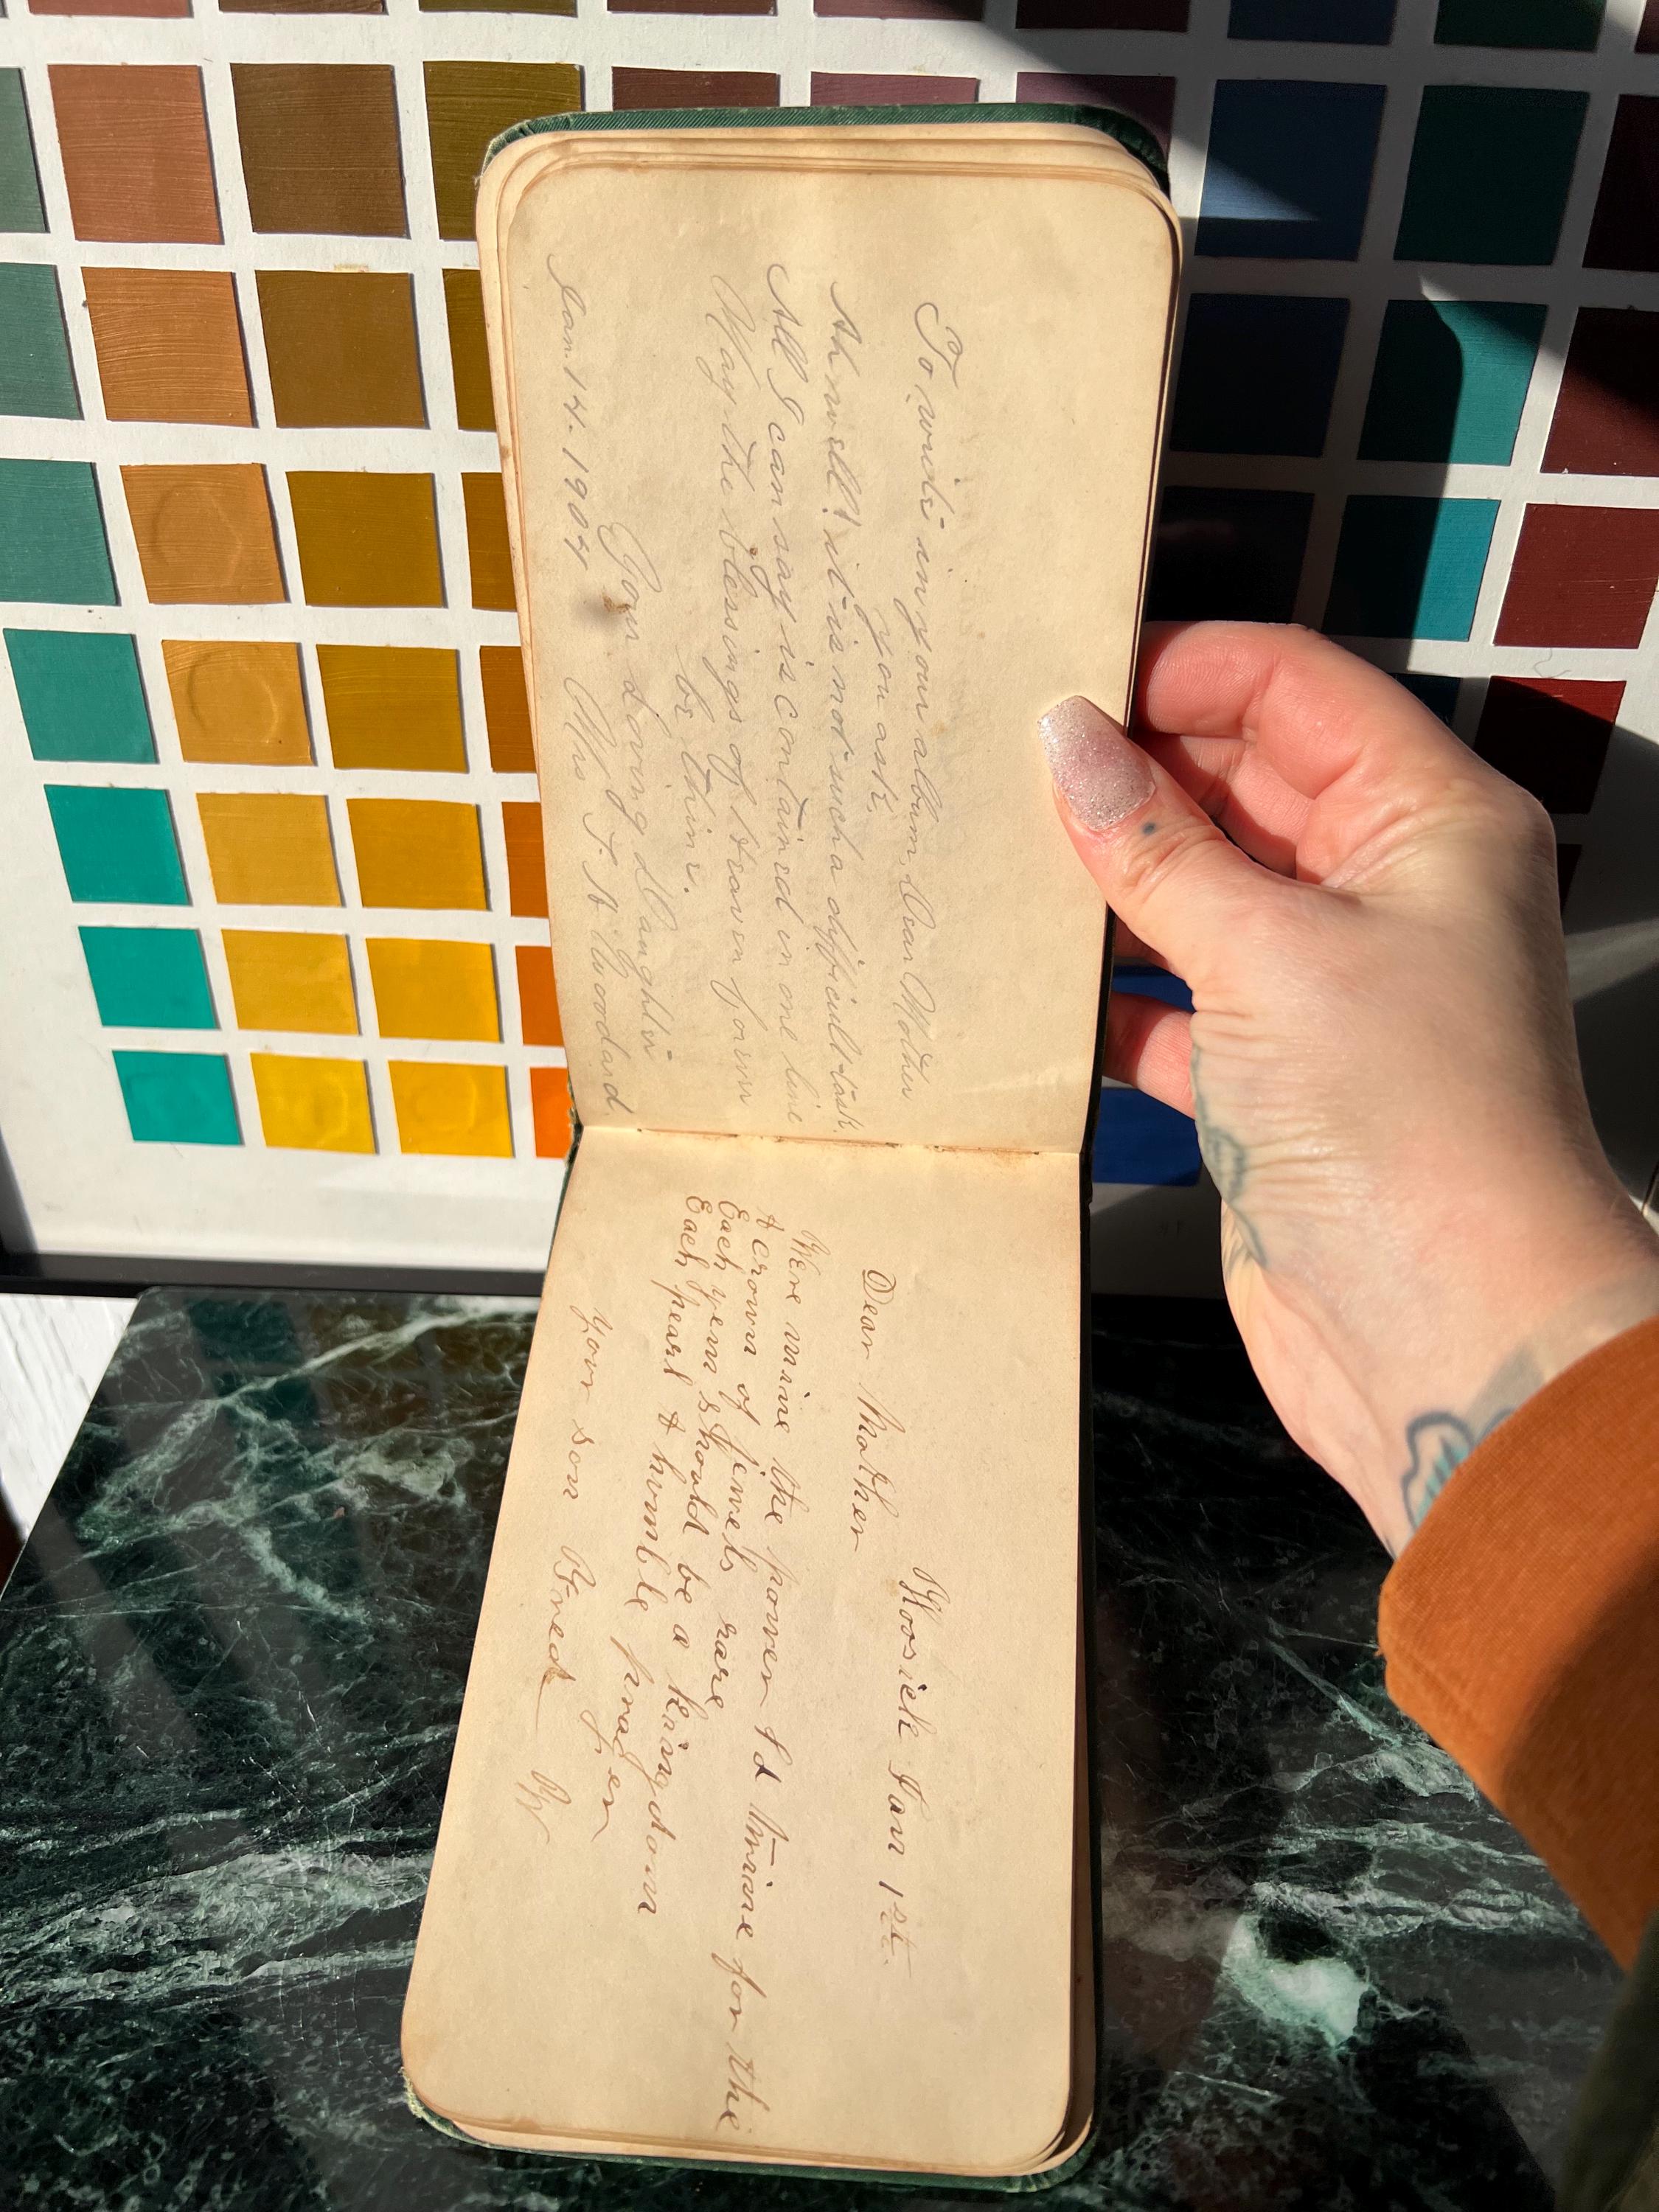 To write in your album, Dear Mother
you ask.
Ah well! it is not such a difficult task.
All I can say is contained in one line
May the blessings of Heaven forever
be thine.
Your Loving Daughter
Jan. 14. 1904. Mrs F. A. Woodard.
Hoosick Jan 1st.
Dear Mother
Were mine the power I'd twine for the
A crown of jewels rare
Each gem should be a kingdom
Each pearl a humble prayer
your son Fred W